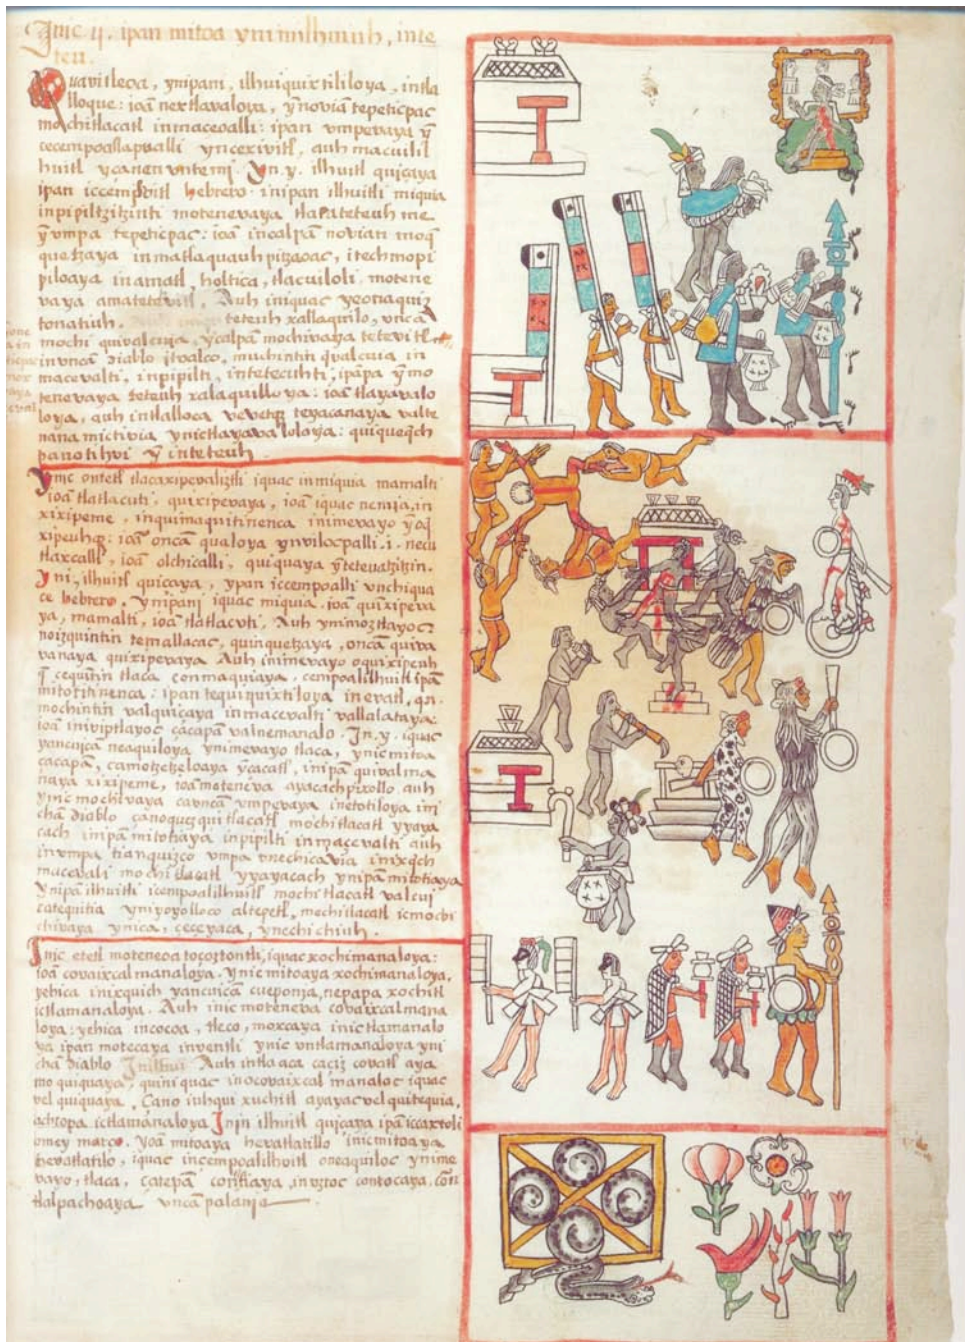 Jnic ij. ipan mitoa yn imilhuiuh, inte
teu.
Quavitleoa, ynipani, ilhuiquixtililoya, intla
lloque: ioã nextlavaloya, ỹ novian tepeticpac
mochitlacatl inmaceoalli: ipan vmpevaya ỹ
cecempoallapvalli yncexivitl, auh macuilil
huitl ycanen vntemi. Yn. y. ilhuitl quiçaya
ipan iccemilvitl hebrero: inipan ilhuitli miquia
inpipiltzitzinti motenevaya tlacateteuh me
ỹvmpa tepeticpac: ioã incalpã novian moq̃
quetzaya inmatlaquauhpitzaoac, itechmopi
piloaya inamatl, holtica, tlacuiloli motene
vaya amatetevitl. Auh iniquac yeoncaquiz
tonatiuh. teteuh xallaquilo, vncã
mochi quivalcuia, ycalpã mochivaya tetevitl
invncã diablo itoalco, muchintin qualcuia in
macevalti, inpipilti, intetecuhti; ipãpa ỹ mo
tenevaya teteuh xalaquilloya: ioã tlayavalo
loya, auh intlalloca vevetq̃ teyacanaya valte
nanamictivia ynictlayavaloloya: quiquequech
panotihui ỹ inteteuh.
Ynic ontetl tlacaxipevaliztli iquac inmiquia mamalti
ioã tlatlacuti, quixipevaya, ioã iquac nemia, in
xixipeme, inquimaquitinenca inimevayo ỹ oq̃
xipeuhq̃: ioã oncã qualoya ynvilocpalli .i. necu
tlaxcalli, ioã olchicalli, quiquaya ỹ tetevatzitzin.
Yni, ilhuitl quiçaya, ypan iccempoalli vnchiqua
ce hebrero. ynipani iquac miquia. ioã quixipeva
ya, mamalti, ioã tlatlacuti. Auh ynimoztlayoc
noizquintin temallacac, quinquetzaya, oncã quiva
vanaya quixipevaya Auh inimevayo oquixipeuh
q̃ cequintin tlaca conmaquiaya, cempoalilhuitl ipã
mitotitinenca: ipan tequiquixtiloya inevatl,
mochintin valquiçaya inmacevalti vallalataya:
ioã inviptlayoc çacapã valnemanalo. Jn. y. iquac
yancuica neaquiloya ynimevayo tlaca, ynic mitoa
çacapã, camotzetzeloaya ỹ çacatl, inipã quivalma
naya xixipeme, ioã moteneva ayacachpixollo auh
ynic mochivaya caoncã vmpevaya inetotiloya in
chã diablo çanoquezqui tlacatl mochitlacatl yyaya
cach inipã mitotiaya inpipilti inmacevalti auh
invmpa tianquizco vmpa vnechicavia inixq̃ch
macevali mochitlacatl yyayacach ynipã mitotiaya
ynipã ilhuitli icempoalilhuitl mochitlacatl valcui
catequitia yniyoyolloco altepetl, mochitlacatl icmochi
chivaya ynica, ceceyaca, ynechichiuh.
Jnic etetl moteneoa toçoztontli, iquac xochimanaloya:
ioã covaixcalmanaloya. ynic mitoaya xochimanaloya,
yehica inixquich yancuicã cueponja, nepapã xochitl
ictlamanaloya. Auh inic moteneva covaixcalmana
loya: yehica incocoa, tleco, moxcaya inictlamanalo
ya ipan motecaya inventli ynic vntlamanaloya yni
chã diablo Auh intlaaca caciz covatl aya
mo quiquaya, quiniquac inocovaixcal manaloc iquac
vel quiquaya. Çano iuhqui xuchitl ayayac vel quitequia,
achtopa ictlamanaloya Jnin ilhuitl quiçaya ipã iccaxtoli
omey março. yoã mitoaya hevatlatillo inicmitoaya
hevatlatilo, iquac incempoalilhuitl oneaquiloc ynime
vayo, tlaca, çatepã contliaya, inoztoc contocaya, con
tlalpachoaya vncã palanja